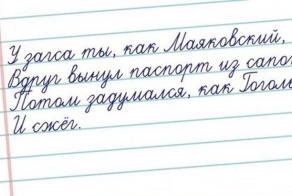 У загса ты, как Маяковский,
Вдруг вынул паспорт из
Потом задумался, как Гоголь
И сжёг.